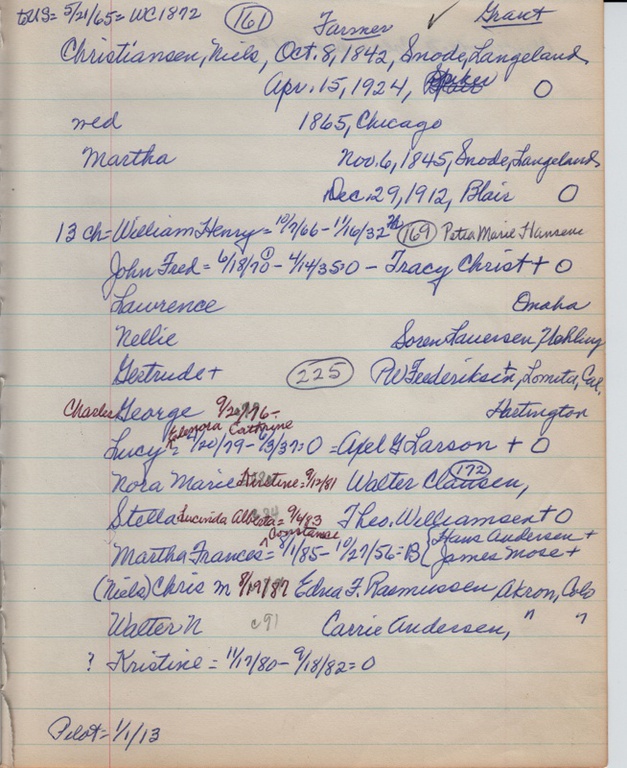 to US = 5/21/65 = WC1872 (161) Farmer ✓ Grant
Christiansen, Niels, Oct. 8, 1842, Snode, Langeland
Apr. 15, 1924, Spiker O
wed 1865, Chicago
Martha Nov. 6, 1845, Snode, Langeland
Dec. 29, 1912, Blair O
13 ch = William Henry = 10/7/66 - 11/16/32 (169) Petra Marie Hansen
John Fred = 6/18/70 - 4/14/35=O - Tracy Christ + O
Lawrence Omaha
Nellie Soren Lauersen,
Gertrude + (225) PW Frederiksen +, Lomita, Cal.
Charles George 9/20/76 - Hartington
Elenora Cathryne
Lucy = 4/20/79 - 6/3/37=O = Axel G Larson + O
Nora Marie Kristine = 9/12/81 Walter Clausen, (172)
Stella Lucinda Alberta = 9/4/83 Theo. Williamsen + O
Constance
Martha Frances = 8/1/85 - 10/27/56 = B { Hans Andersen +
James Mose +
(Niels) Chris M 8/19/87 Edna F. Rasmussen, Akron, Colo
Walter N c91 Carrie Andersen, " "
? Kristine = 11/17/80 - 9/18/82 = O
Pilot = 1/1/13